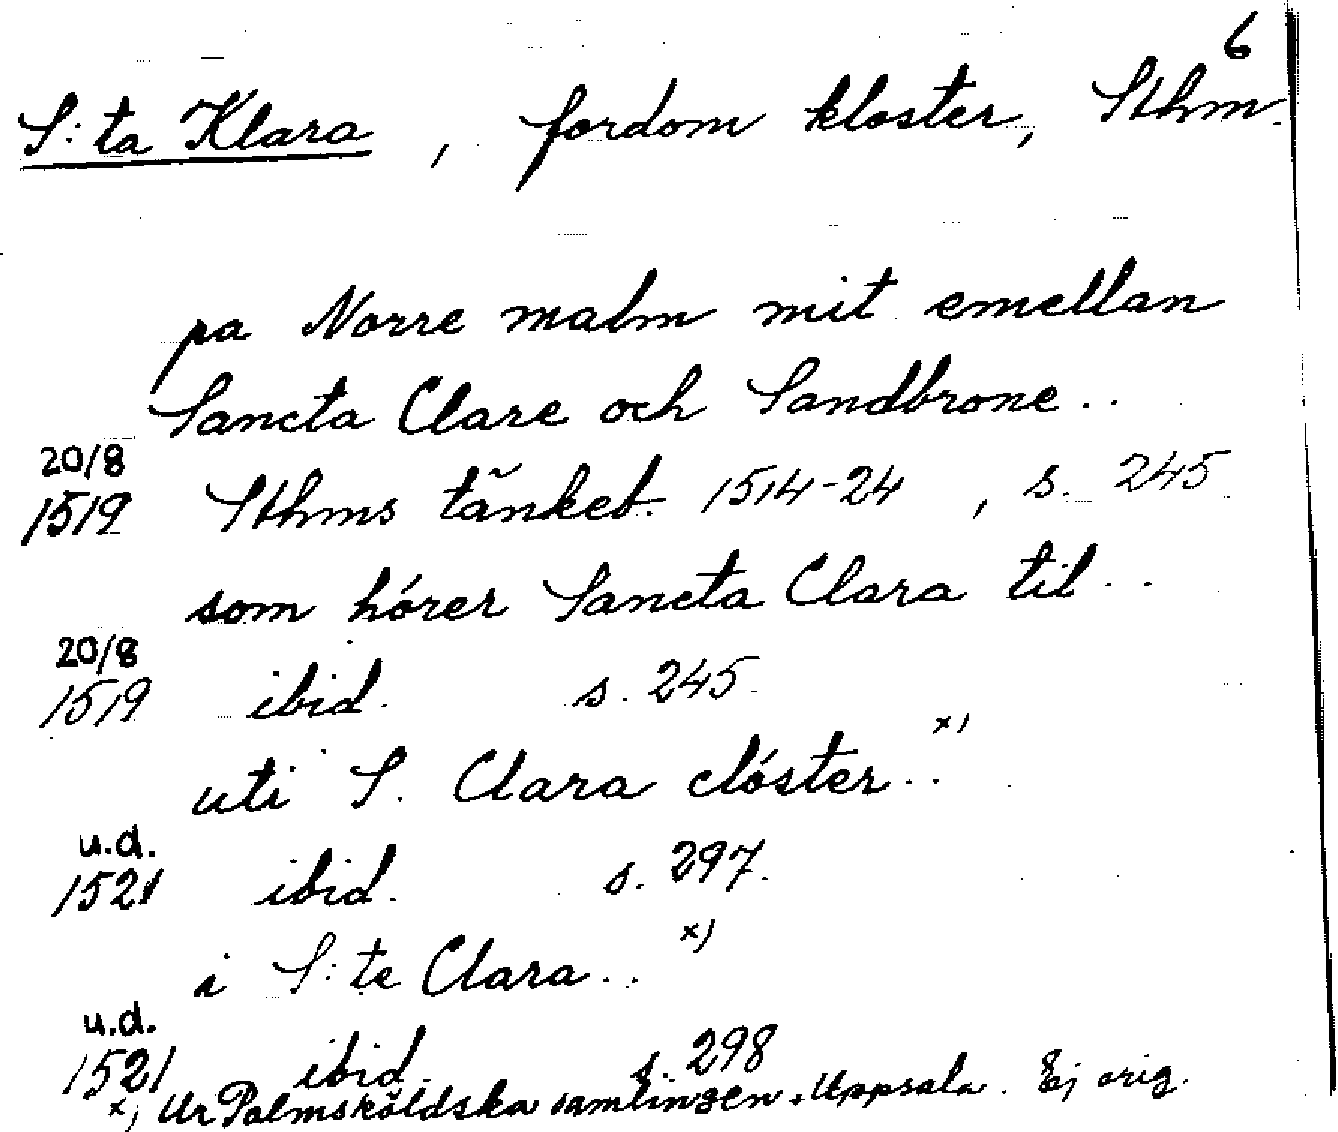 6
S:ta Klara, fordom kloster, Sthm.
pa Norre malm mit emellan
Sancta Clare och Sandbrone..
20/8
1519 Sthms tänkeb. 1514-24, s. 245
som hórer Sancta Clara til..
20/8
1519 ibid. s. 245
uti S. Clara clóster.. x)
u.d.
1521 ibid. s. 297.
i S:te Clara.. x)
u.d.
1521 ibid. s. 298
x) Ur Palmsköldska samlingen. Uppsala. Ej orig.